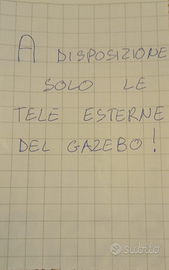 A DISPOSIZIONE
SOLO LE
TELE ESTERNE
DEL GAZEBO!
subito